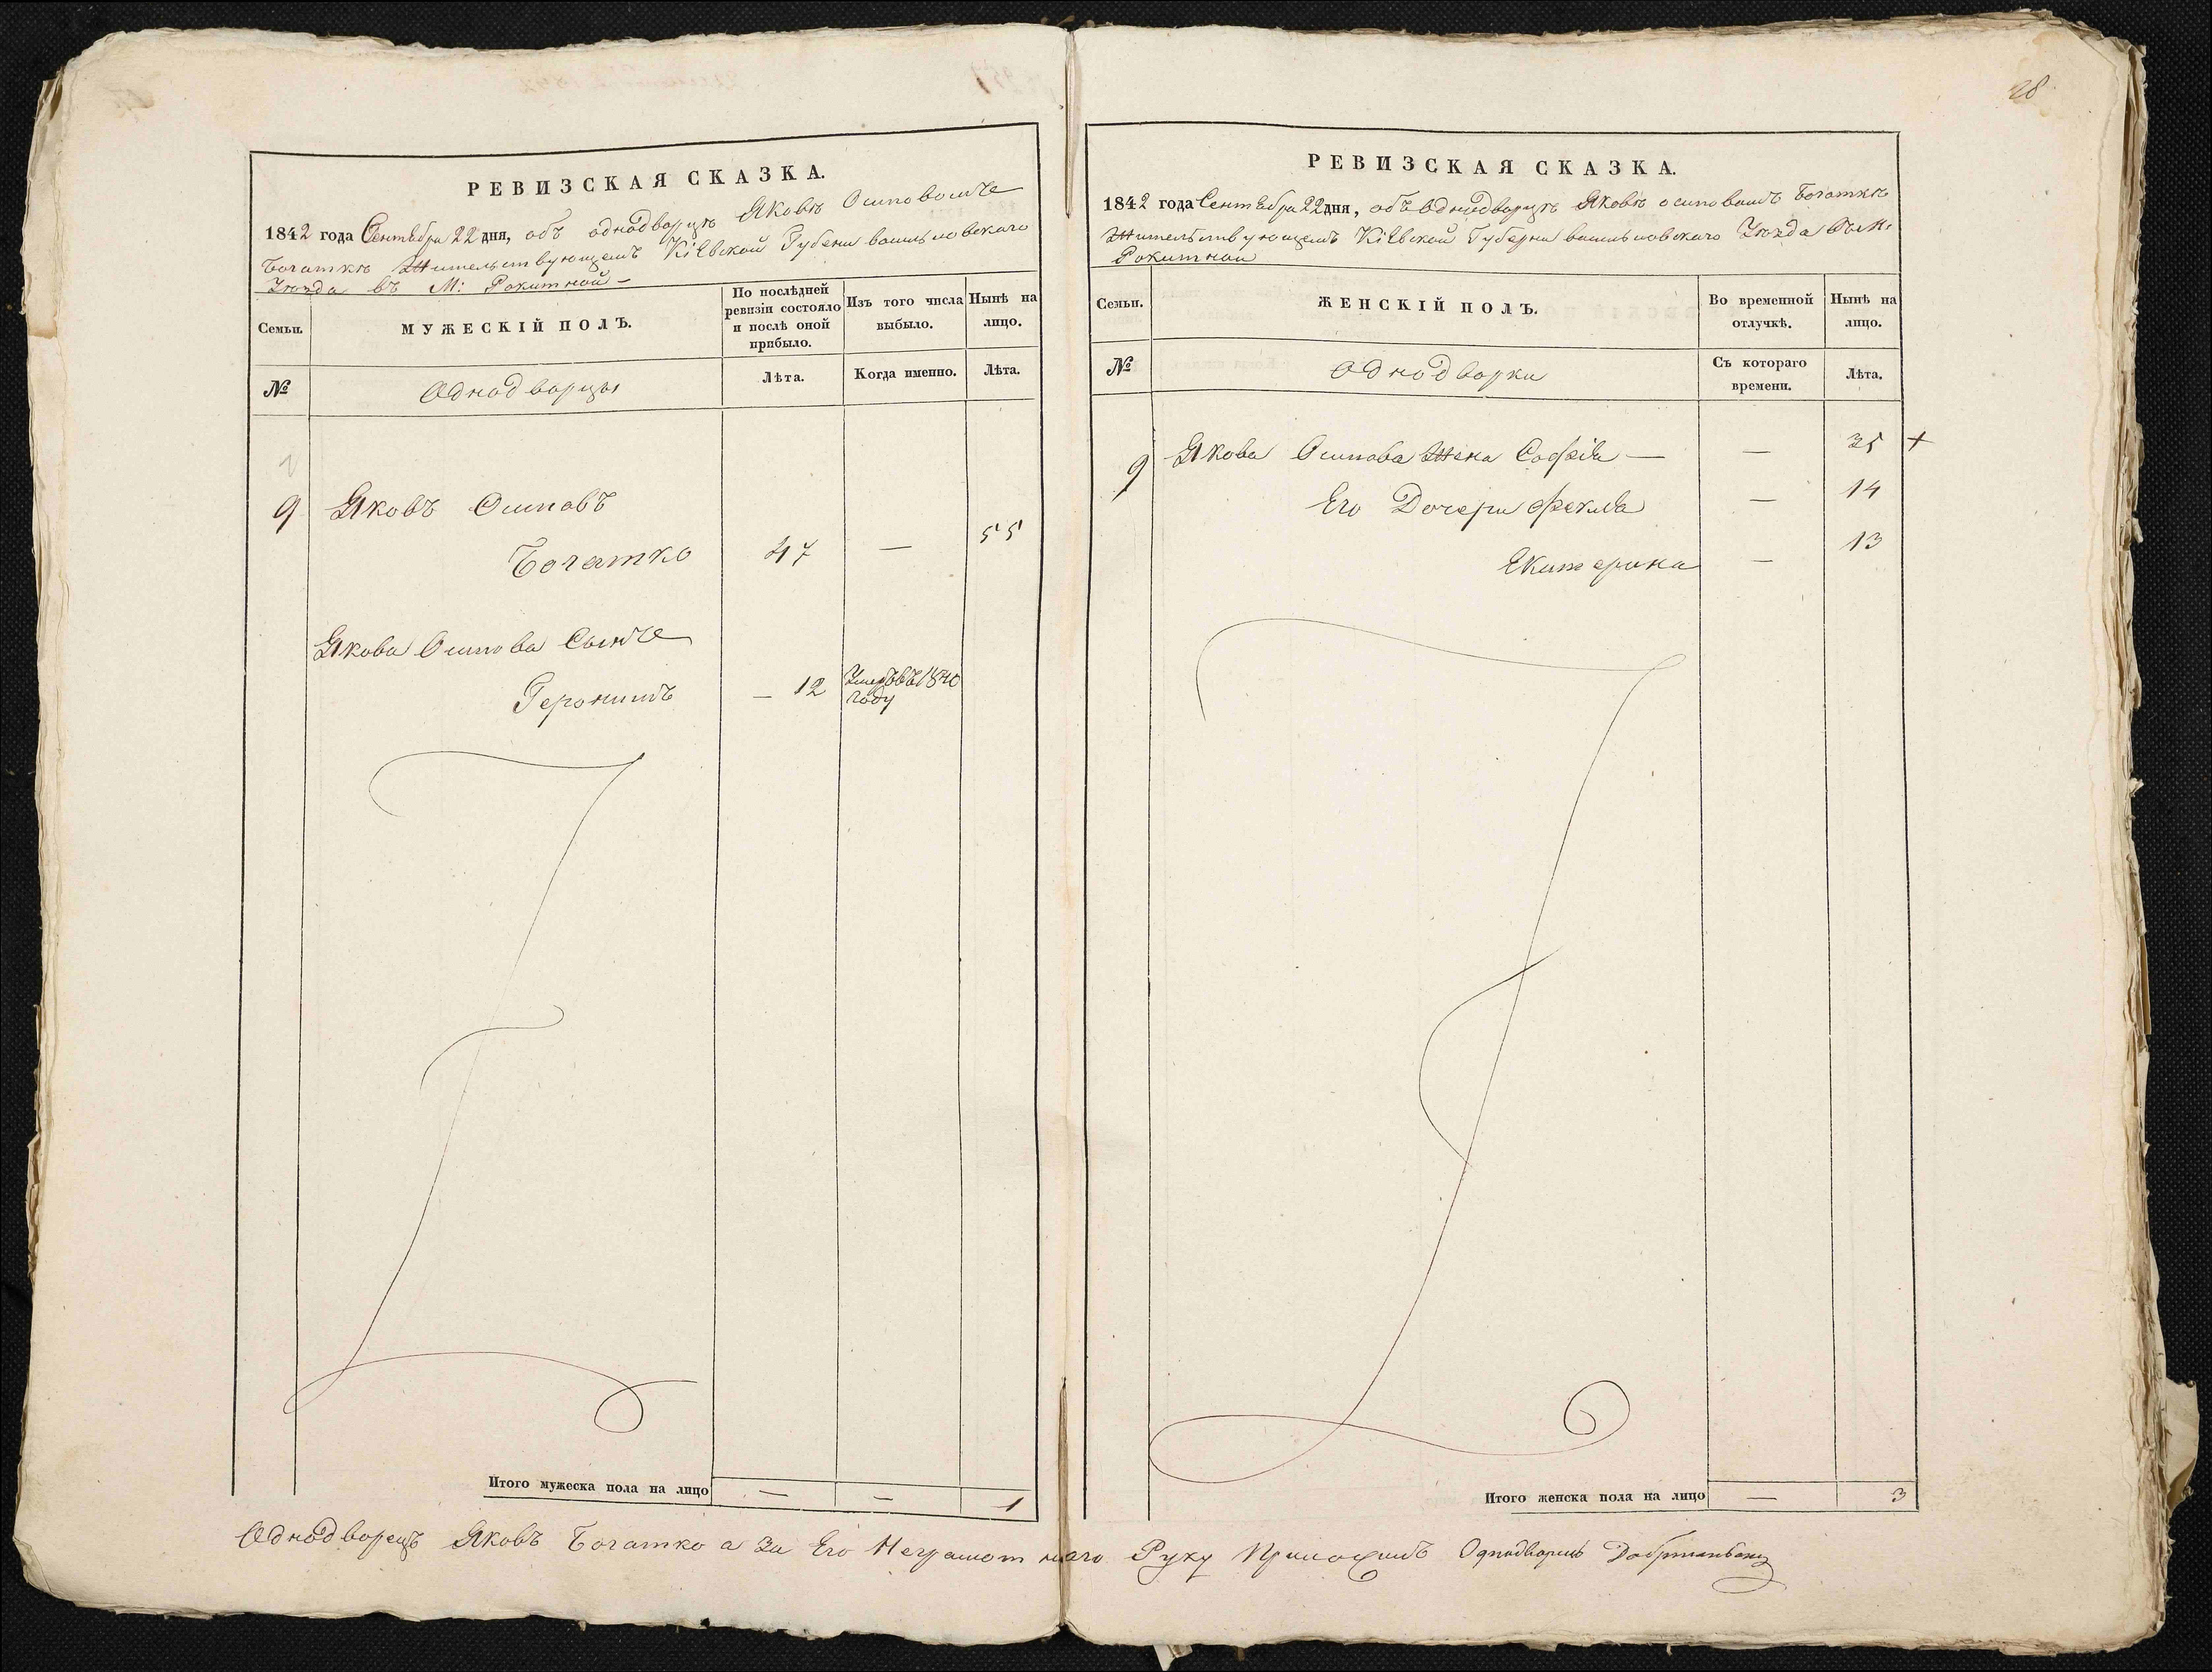 28
РЕВИЗСКАЯ СКАЗКА.
1842 года Сентября 22 дня, объ однодворцѣ Яковѣ Осиповомъ
Богаткѣ Жительствующемъ Кіевской Губерни васильковскаго
Уѣзда въ М: Рокитной –
Семьи.
МУЖЕСКІЙ ПОЛЪ.
По послѣдней ревизіи состояло и послѣ оной прибыло.
Изъ того числа выбыло.
Нынѣ на лицо.
№
Однодворцы
Лѣта.
Когда именно.
Лѣта.
9 Яковъ Осиповъ
Богатко 47 — 55
Якова Осипова Сынъ
Геронимъ — 12 Умеръ въ 1840
году
Итого мужеска пола на лицо — — 1
РЕВИЗСКАЯ СКАЗКА.
1842 года Сентября 22 дня, объ Однодворцѣ Яковѣ осиповомъ Богаткѣ
Жительствующемъ Кіевской Губерни васильковскаго Уѣзда въ М:
Рокитной
Семьи.
ЖЕНСКІЙ ПОЛЪ.
Во временной отлучкѣ.
Нынѣ на лицо.
№
Однодворки
Съ котораго времени.
Лѣта.
9 Якова Осипова Жена Софія — — 35 +
Его Дочери Фекла — 14
Екатерина — 13
Итого женска пола на лицо — 3
Однодворецъ Яковъ Богатко а За Его Неграмотнаго Руку Приложилъ Однодворецъ